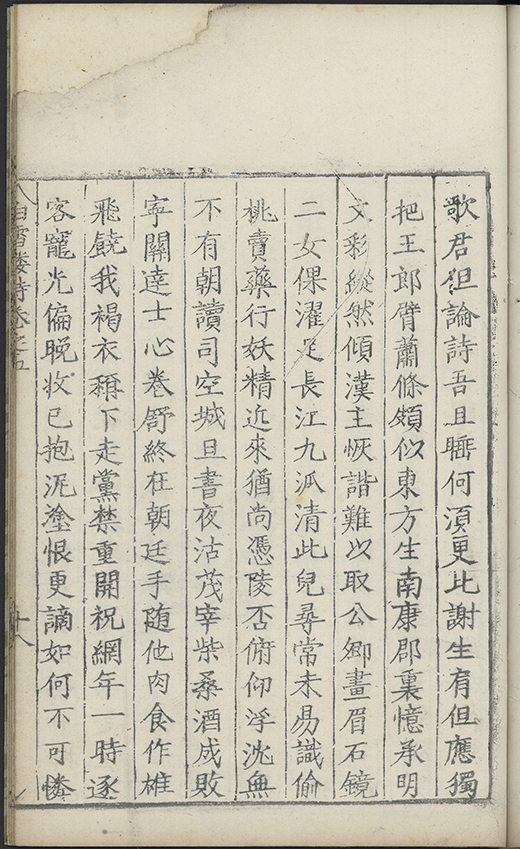 歌君但論詩吾且睡何須更比謝生有但應獨
把王郎臂蕭條頗似東方生南康郡裏憶承明
文彩縱然傾漢主恢諧難以取公卿畫眉石鏡
二女倮濯足長江九派清此兒尋常未易識偷
桃賣藥行妖精近來猶尚憑陵否俯仰浮沈無
不有朝讀司空城旦書夜沽茂宰柴桑酒成敗
寧關達士心卷舒終在朝廷手随他肉食作雄
飛饒我褐衣稱下走黨禁重開祝網年一時逐
客寵光偏晚收已抱泥塗恨更謫如何不可憐
白雪樓詩卷之五
十八